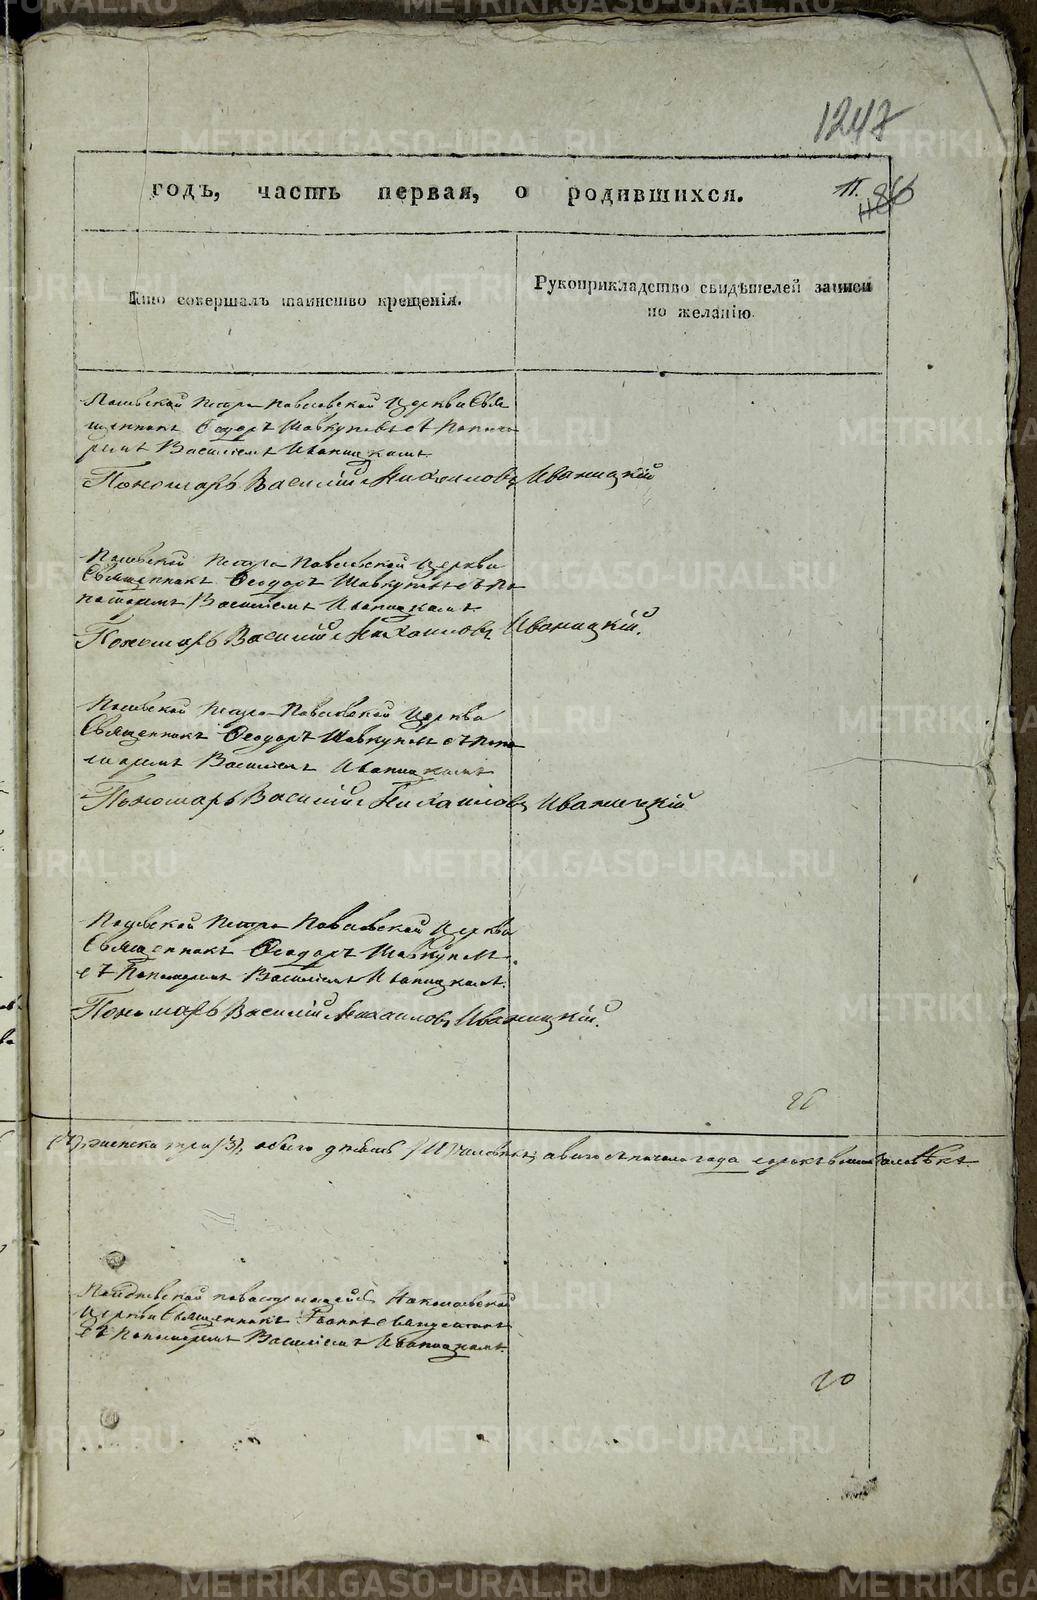 1247
годъ, часть первая, о родившихся.
11.
86
Кто совершалъ таинство крещенія.
Рукоприкладство свидѣтелей записи
по желанію.
Петро Павловской Церкви Свя
щенникъ Ѳеодоръ Шавкуновъ съ Понама
ремъ Василіемъ Иваницкимъ
Пономарь Василій Михаиловъ Иваницкій
Петро Павловской Церкви
Священникъ Ѳеодоръ Шавкуновъ съ По
номаремъ Василіемъ Иваницкимъ
Пономарь Василій Михаиловъ Иваницкій.
Петро Павловской Церкви
Священникъ Ѳеодоръ Шавкуновъ съ Поно
маремъ Василіемъ Иваницкимъ
Пономарь Василій Михаиловъ Иваницкій
Петро Павловской Церкви
Священникъ Ѳеодоръ Шавкуновъ
съ Пономаремъ Василіемъ Иваницкимъ.
Пономарь Василій Михаиловъ Иваницкій.
женска три /3/, обоего человѣкъ, а всего съ начала года сорокъ человѣкъ
Николаевской
Церкви Священникъ Іоаннъ
съ Пономаремъ Василіемъ Иваницкимъ.
20
METRIKI.GASO-URAL.RU